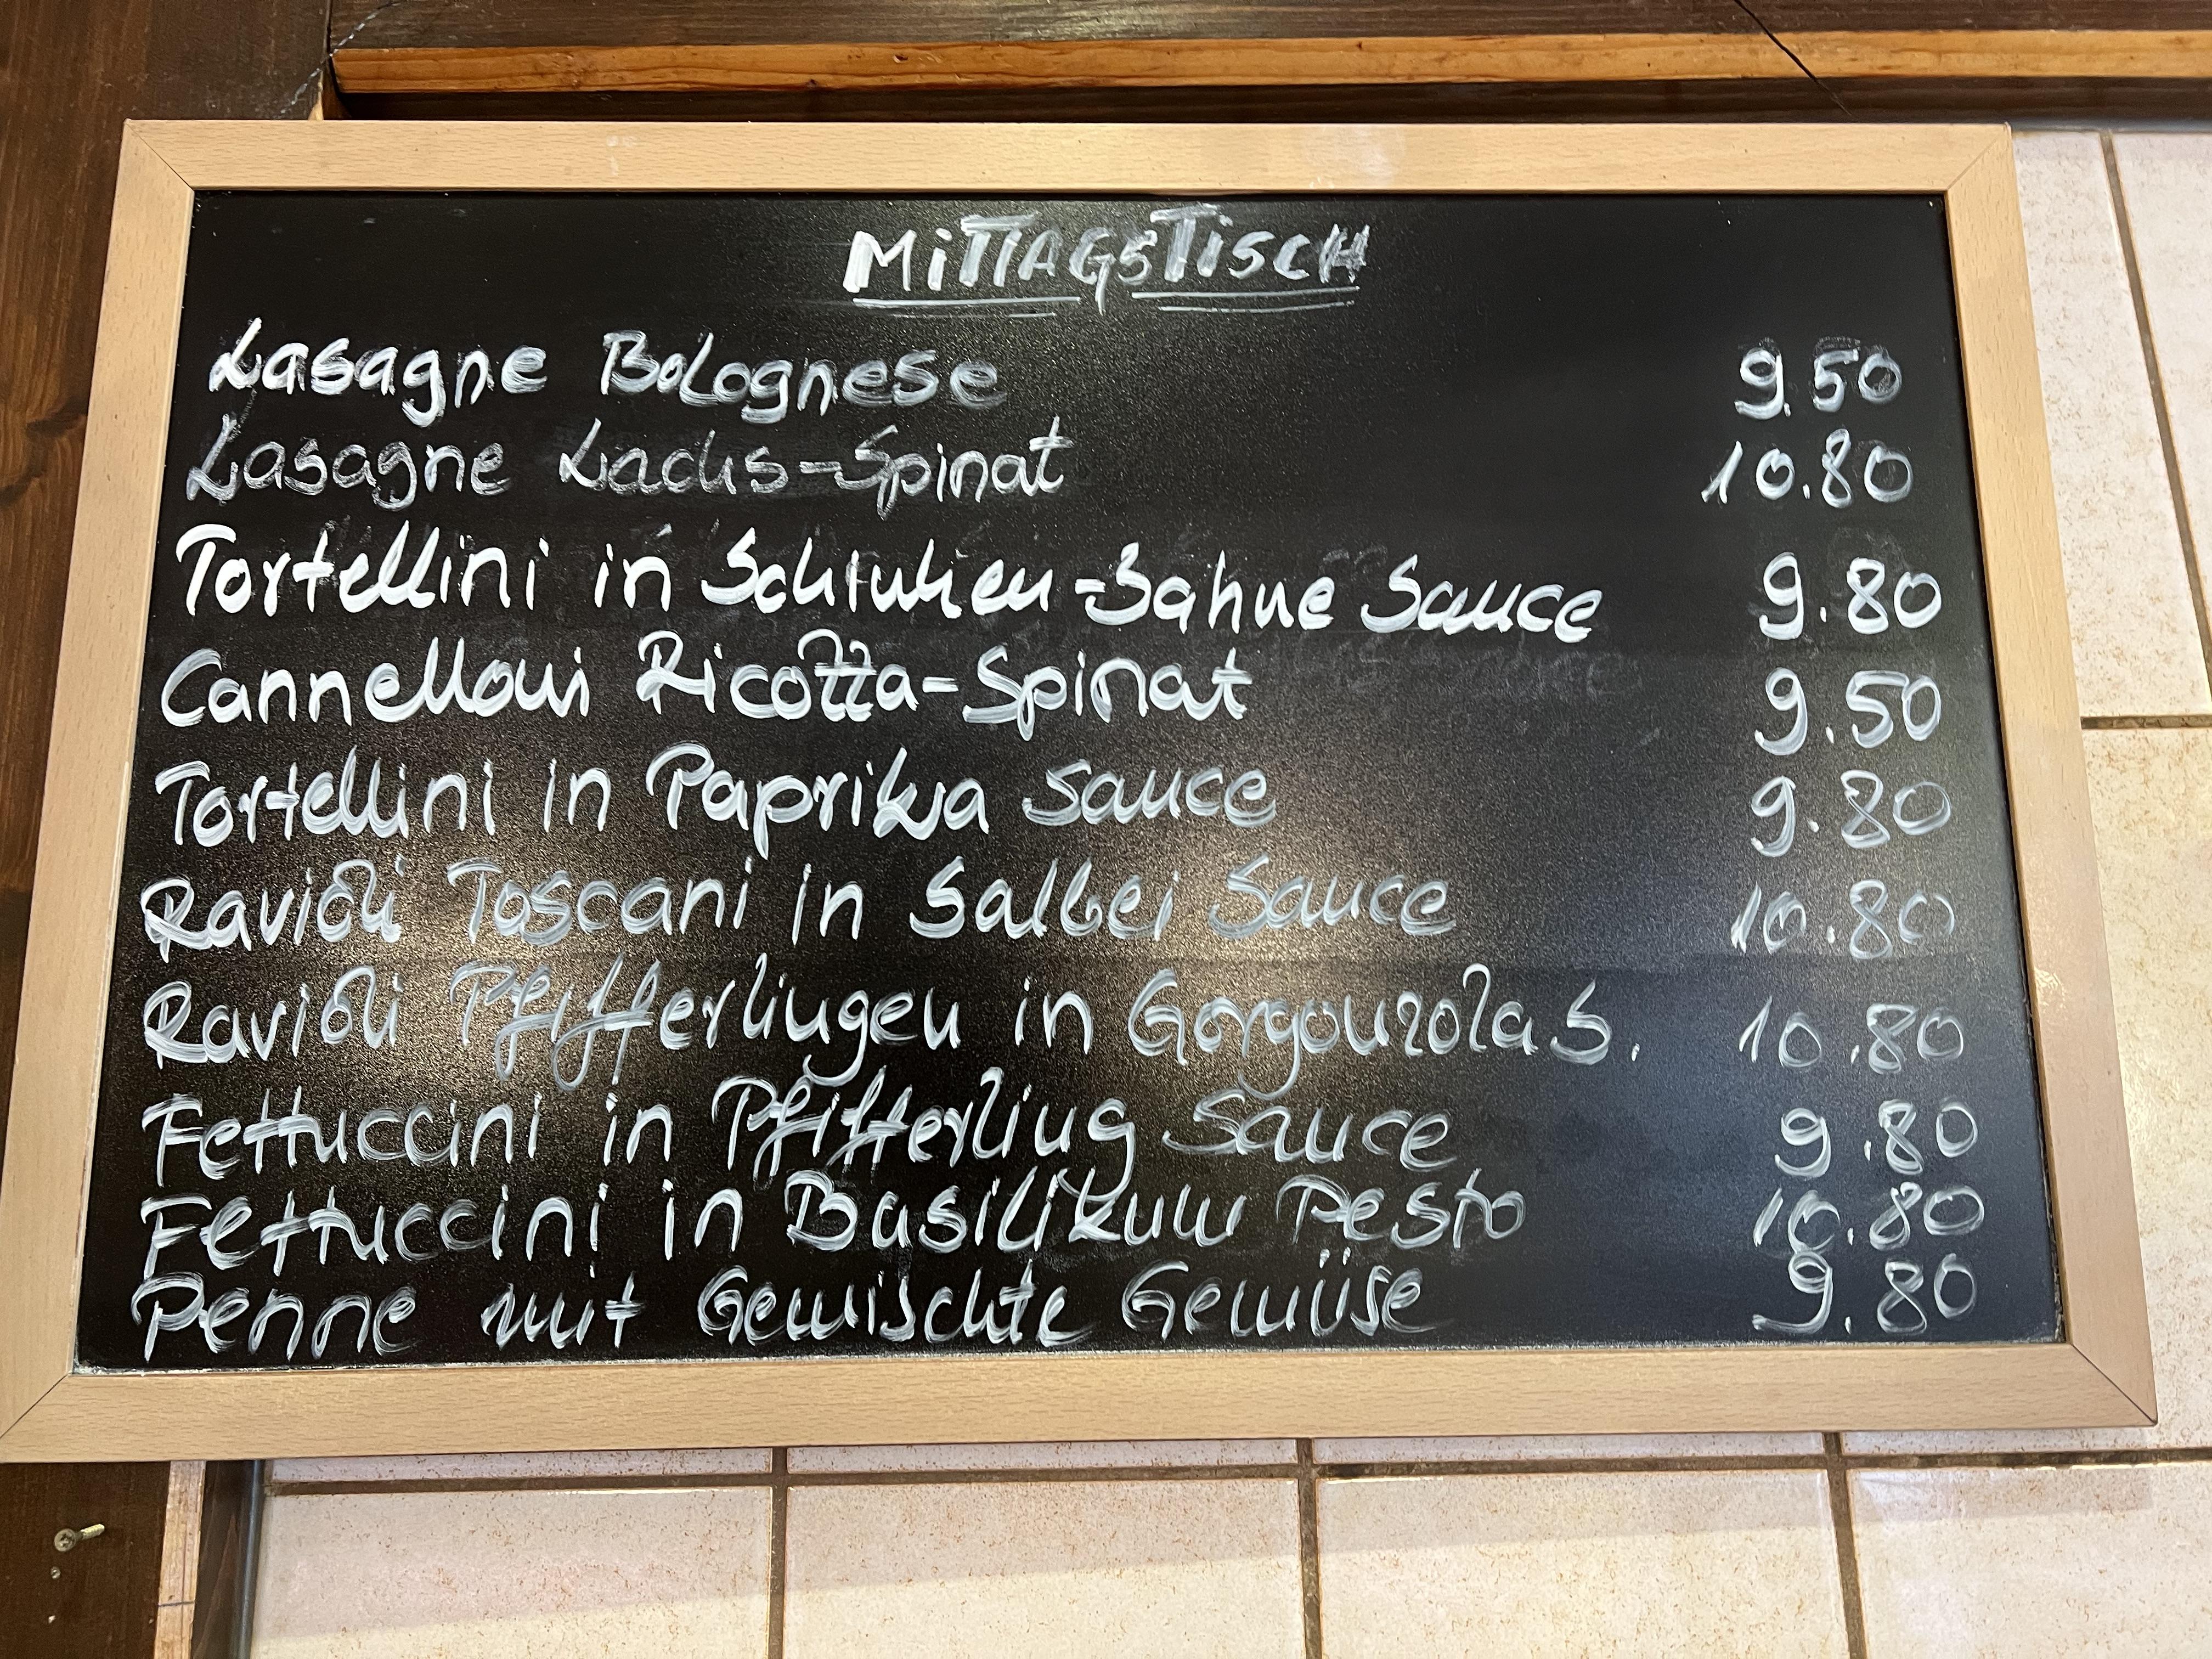 MiTTAGSTiSCH
Lasagne Bolognese 9.50
Lasagne Lachs-Spinat 10.80
Tortellini in Schinken-Sahne Sauce 9.80
Cannelloni Ricotta-Spinat 9.50
Tortellini in Paprika Sauce 9.80
Ravioli Toscani in Salbei Sauce 10.80
Ravioli Pfifferlingen in Gorgonzola S. 10.80
Fettuccini in Pfifferling Sauce 9.80
Fettuccini in Basilikum Pesto 10.80
Penne mit Gemischte Gemüse 9.80